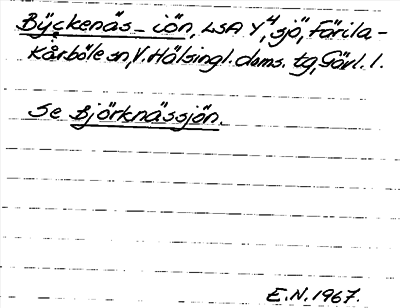 Byckenäs-iön, LSA Y4, sjö, Färila-
Kårböle sn, V. Hälsingl. doms. tg, Gävl. l.
Se Björknässjön.
E.N. 1967.